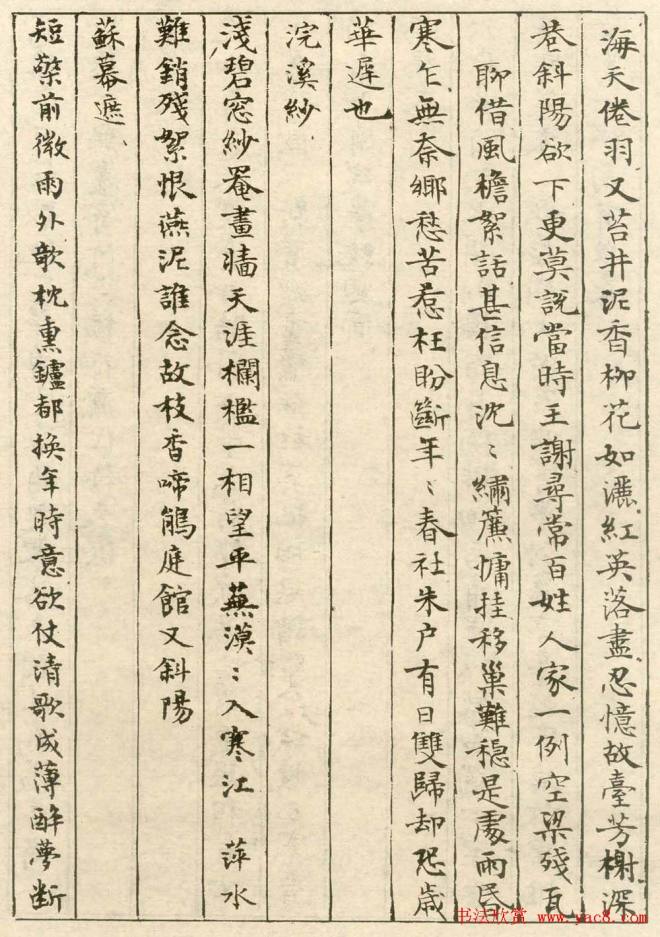 海天倦羽又苔井泥香柳花如灑紅英落盡忍憶故臺芳榭深
巷斜陽欲下更莫說當時王謝尋常百姓人家一例空梁殘瓦
聊借風檐絮話甚信息沈〻繡簾慵挂移巢難穩是處雨昏
寒乍無奈鄉愁苦惹枉盼斷年〻春社朱户有日雙歸却恐歲
華遲也
浣溪紗
淺碧窓紗罨畫牆天涯欄檻一相望平蕪漠〻入寒江 萍水
難銷殘絮恨燕泥誰念故枝香啼鵑庭館又斜陽
蘇幕遮
短檠前微雨外欹枕熏鑪都換年時意欲仗清歌成薄醉夢断
书法欣赏 www.yac8.com